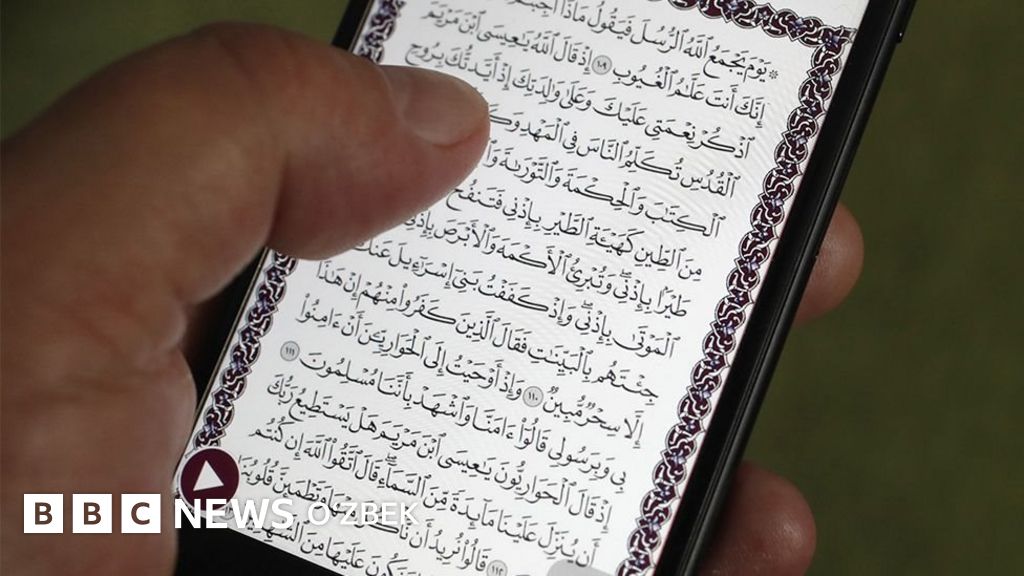 ۞ يَوْمَ يَجْمَعُ ٱللَّهُ ٱلرُّسُلَ فَيَقُولُ مَاذَآ
إِنَّكَ أَنتَ عَلَّـٰمُ ٱلْغُيُوبِ ١٠٩ إِذْ قَالَ ٱللَّهُ يَـٰعِيسَى ٱبْنَ مَرْيَمَ
ٱذْكُرْ نِعْمَتِى عَلَيْكَ وَعَلَىٰ وَٰلِدَتِكَ إِذْ أَيَّدتُّكَ بِرُوحِ
ٱلْقُدُسِ تُكَلِّمُ ٱلنَّاسَ فِى ٱلْمَهْدِ
ٱلْكِتَـٰبَ وَٱلْحِكْمَةَ وَٱلتَّوْرَىٰةَ
مِنَ ٱلطِّينِ كَهَيْـَٔةِ ٱلطَّيْرِ بِإِذْنِى فَتَنفُخُ
طَيْرًۢا بِإِذْنِى وَتُبْرِئُ ٱلْأَكْمَهَ وَٱلْأَبْرَصَ
ٱلْمَوْتَىٰ بِإِذْنِى وَإِذْ كَفَفْتُ بَنِىٓ إِسْرَٰٓءِيلَ عَنكَ
جِئْتَهُم بِٱلْبَيِّنَـٰتِ فَقَالَ ٱلَّذِينَ كَفَرُوا۟ مِنْهُمْ إِنْ هَـٰذَآ
إِلَّا سِحْرٌ مُّبِينٌ ١١٠ وَإِذْ أَوْحَيْتُ إِلَى ٱلْحَوَارِيِّـۧنَ أَنْ ءَامِنُوا۟
بِى وَبِرَسُولِى قَالُوٓا۟ ءَامَنَّا وَٱشْهَدْ بِأَنَّنَا مُسْلِمُونَ ١١١
إِذْ قَالَ ٱلْحَوَارِيُّونَ يَـٰعِيسَى ٱبْنَ مَرْيَمَ هَلْ يَسْتَطِيعُ رَبُّكَ
أَن يُنَزِّلَ عَلَيْنَا مَآئِدَةً مِّنَ ٱلسَّمَآءِ قَالَ ٱتَّقُوا۟ ٱللَّهَ إِن كُنتُم
١١٢ قَالُوا۟ نُرِيدُ أَن نَّأْكُلَ مِنْهَا وَتَطْمَئِنَّ قُلُوبُنَا
وَنَكُونَ عَلَيْهَا مِنَ
BBC NEWS O'ZBEK